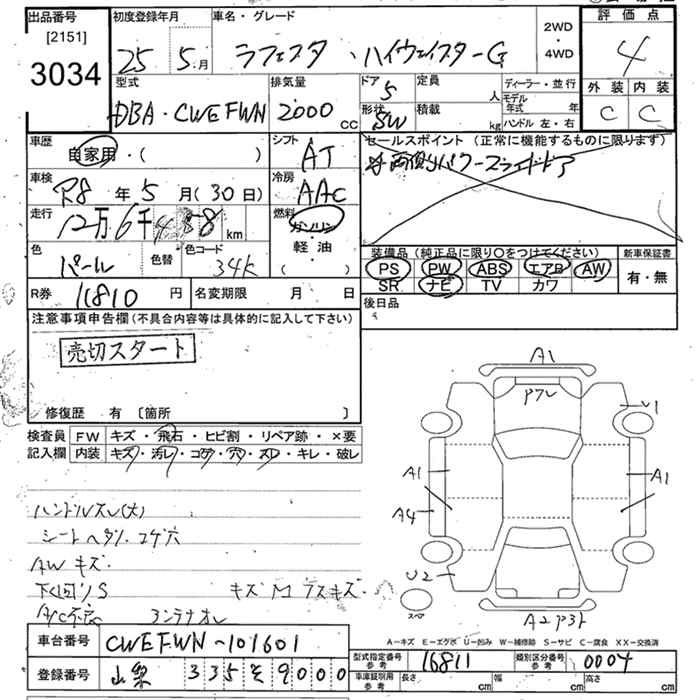 出品番号
[2151]
3034
初度登録年月
25 5月
車名・グレード
ラフェスタ ハイウェイスターG
2WD
・
4WD
評価点
4
型式
DBA・CWEFWN
排気量
2000 CC
ドア
5
定員
人
形状
SW
積載
kg
ディーラー・並行
モデル年式 年
ハンドル 左・右
外装 内装
C C
車歴
自家用・( )
シフト
AT
車検
R8年5月(30日)
冷房
AAC
走行
12万6千438km
燃料
ガソリン
軽・油
( )
色
パール
色替
色コード
34K
セールスポイント(正常に機能するものに限ります)
両側パワースライドドア
装備品(純正品に限り○をつけてください)
PS PW ABS エアB AW
SR ナビ TV カワ
新車保証書
有・無
R券 11810円
名変期限 月 日
後日品
注意事項申告欄(不具合内容等は具体的に記入して下さい)
売切スタート
修復歴 有 [箇所 ]
検査員
記入欄
FW キズ・飛石・ヒビ割・リペア跡・×要
内装 キズ・汚レ・コゲ・穴・スレ・キレ・破レ
ハンドルスレ(大)
シートヘタリ.コゲ穴
AWキズ
下回りS
キズ
A/C不応
コンテナオレ
A1
アクレ
U1
A1
A1
A4
U2
スペア
A2
A-キズ E-エクボ U-凹み W-補修跡 S-サビ C-腐食 XX-交換済
車台番号 CWEFWN-101601
登録番号 山梨 335 そ 9000
型式指定番号
参考
16811
類別区分番号
参考
0004
車庫証明用
参考
長さ cm 幅 cm 高さ cm